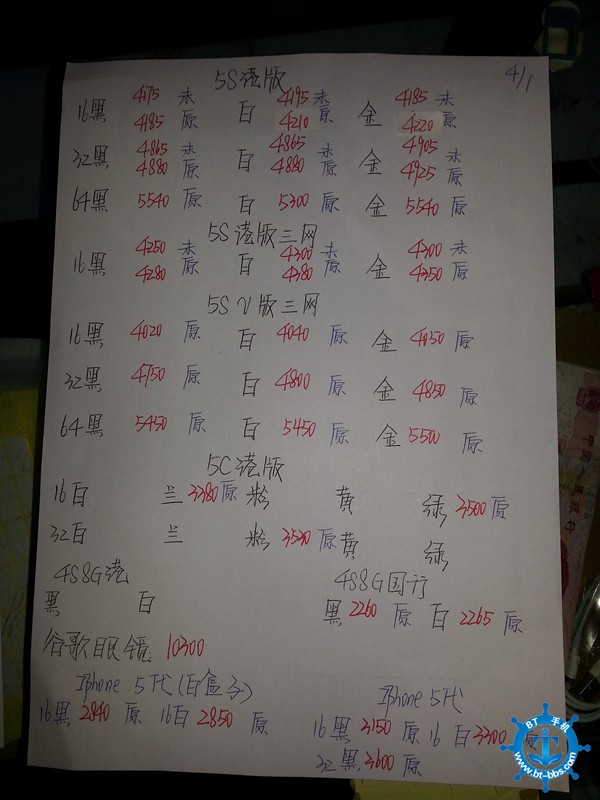 5S港版 4/1
4175 未 4195 未 4185 未
16黑 白 金
4185 原 4210 原 4220 原
4865 未 4865 未 4905 未
32黑 白 金
4880 原 4880 原 4925 原
64黑 5540 原 白 5300 原 金 5540 原
5S港版三网
4250 未 4300 未 4300 未
16黑 白 金
4280 原 4380 原 4350 原
5S V版三网
16黑 4020 原 白 4040 原 金 4050 原
32黑 4750 原 白 4800 原 金 4850 原
64黑 5450 原 白 5450 原 金 5500 原
5C港版
16白 兰 3380原 粉 黄 绿 3500原
32白 兰 粉 3530原 黄 绿
4S8G港 4S8G国行
黑 白 黑 2260 原 白 2265 原
谷歌眼镜 10300
Iphone 5代(白盒子) Iphone 5代
16黑 2840 原 16白 2850 原 16黑 3150原 16白 3300原
32黑 3600原
BT 手机
www.bt-bbs.com